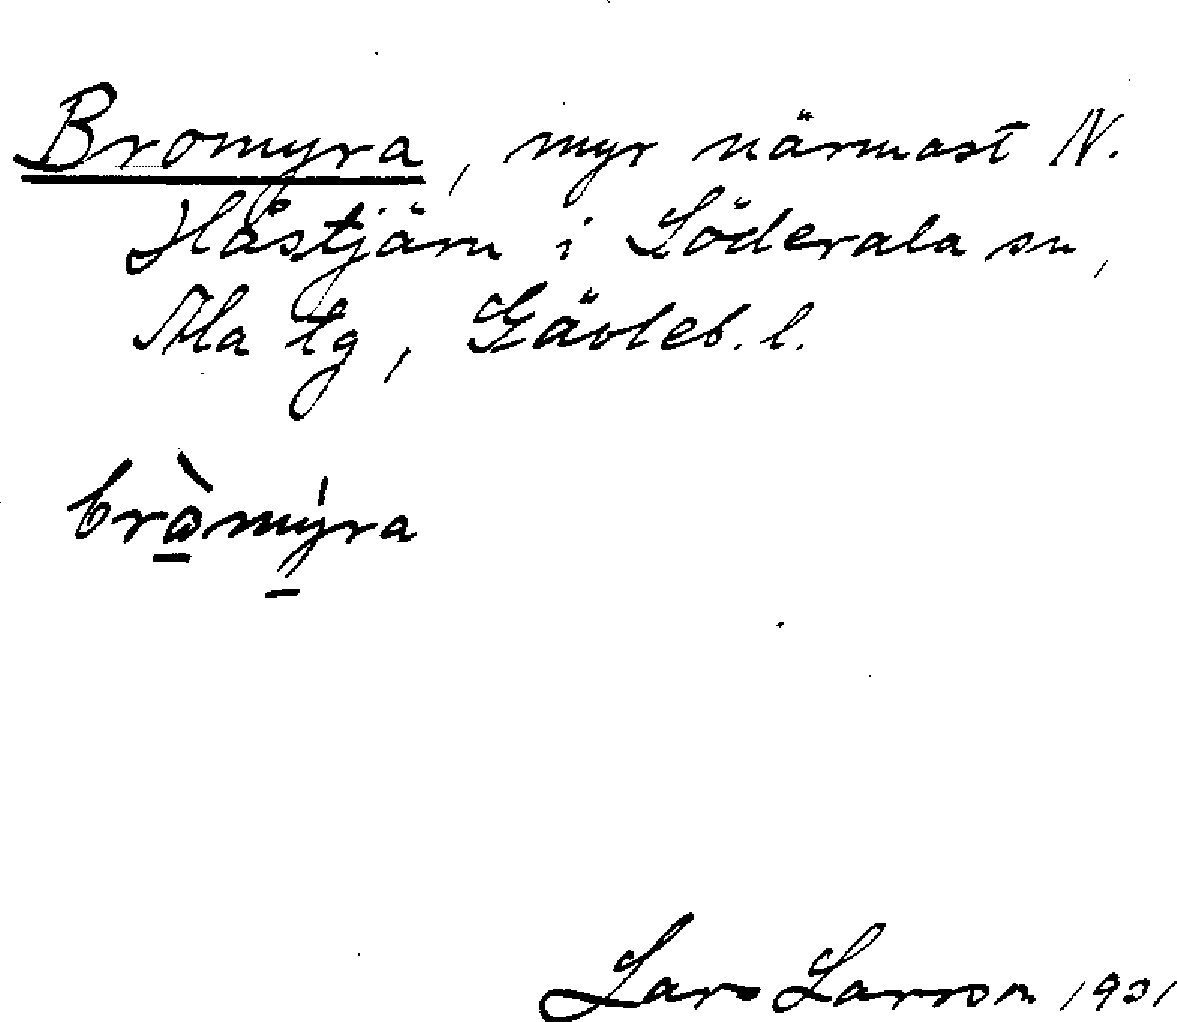 Bromyra, myr närmast N.
Håstjärn i Söderala sn,
Ala tg, Gävleb. l.
bròmýra
Lars Larsson 1931